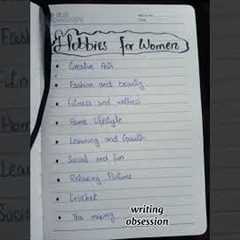 Hobbies for Women
• Creative Arts
• Fashion and beauty
• Fitness and wellness
• Home lifestyle
• Learning and Growth
• Social and fun
• Relaxing
• Cricket
• Tea making
writing
obsession